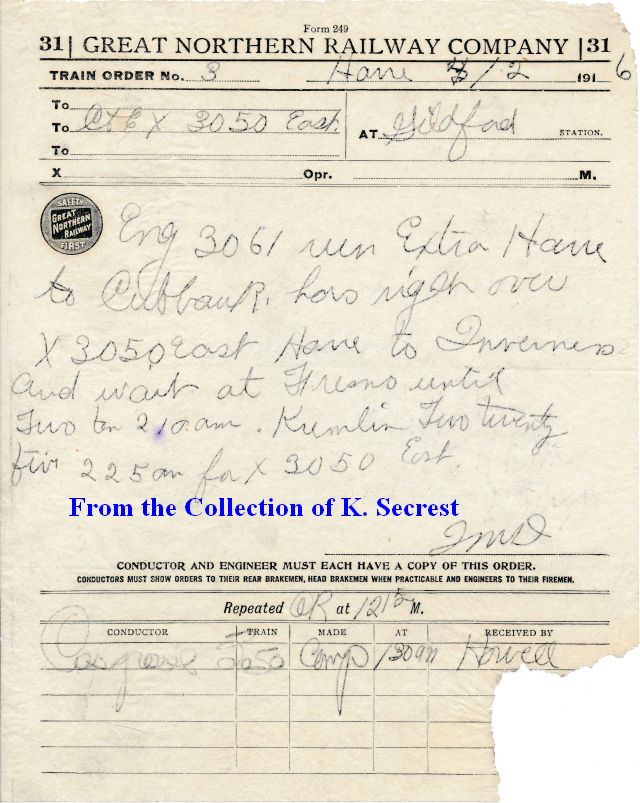 Form 249
31 | GREAT NORTHERN RAILWAY COMPANY | 31
TRAIN ORDER No. 3 Havre 2/2 1916
To
To C&E X 3050 East
To
AT Gildford STATION.
X Opr. M.
SAFETY
GREAT
NORTHERN
RAILWAY
FIRST
Eng 3061 run Extra Havre
to Cutbank. has right over
X 3050 East Havre to Inverness
and wait at Fresno until
Two ten 210 am. Kremlin Two twenty
five 225 am for X 3050 East
From the Collection of K. Secrest
CONDUCTOR AND ENGINEER MUST EACH HAVE A COPY OF THIS ORDER.
CONDUCTORS MUST SHOW ORDERS TO THEIR REAR BRAKEMEN, HEAD BRAKEMEN WHEN PRACTICABLE AND ENGINEERS TO THEIR FIREMEN.
Repeated OK at 1215 M.
CONDUCTOR TRAIN MADE AT RECEIVED BY
Cosgrove 3050 Comp 130 am Howell